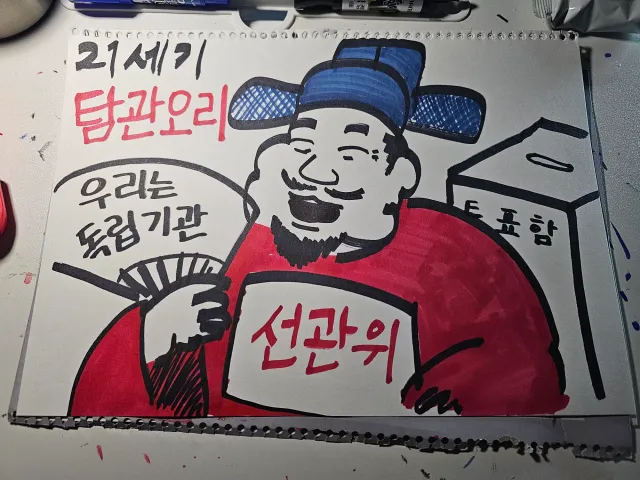 21세기
탐관오리
우리는
독립기관
투표함
선관위